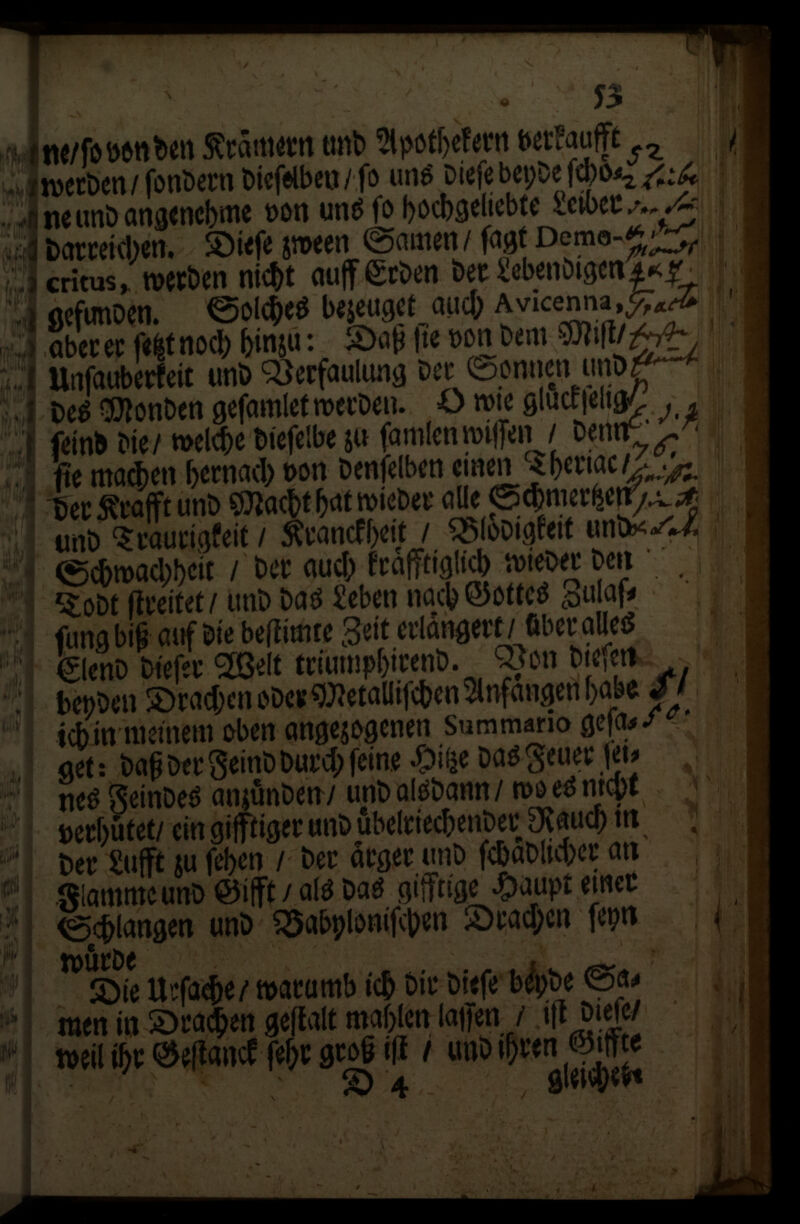 53
ne/ſo von den Kraͤmern und Apothekern verkaufft
werden / ſondern dieſelben / ſo uns dieſe beyde ſchoͤ⸗
ne und angenehme von uns ſo hochgeliebte Leiber
darreichen. Dieſe zween Samen / ſagt Demo-
critus, werden nicht auff Erden der Lebendigen
gefunden. Solches bezeuget auch Avicenna,
aber er ſetzt noch hinzu: Daß ſie von dem Miſt/
Unſauberkeit und Verfaulung der Sonnen und
des Monden geſamlet werden. O wie gluͤckſelig
ſeind die / welche dieſelbe zu ſamlen wiſſen / denn
ſie machen hernach von denſelben einen Theriac /
der Krafft und Macht hat wieder alle Schmertzen /
und Traurigkeit / Kranckheit / Bloͤdigkeit und
Schwachheit / der auch kraͤfftiglich wieder den
Todt ſtreitet / und das Leben nach Gottes Zulaſ⸗
ſung biß auf die beſtimte Zeit erlaͤngert / uͤber alles
Elend dieſer Welt triumphirend. Von dieſen
beyden Drachen oder Metalliſchen Anfaͤngen habe
ich in meinem oben angezogenen Summario geſa⸗
get: daß der Feind durch ſeine Hitze das Feuer ſei⸗
nes Feindes anzuͤnden / und alsdann / wo es nicht
verhuͤtet / ein gifftiger und uͤbelriechender Rauch in
der Lufft zu ſehen / der aͤrger und ſchaͤdlicher an
Flamme und Gifft / als das gifftige Haupt einer
Schlangen und Babyloniſchen Drachen ſeyn
wuͤrde
Die Urſache / warumb ich dir dieſe beyde Sa⸗
men in Drachen geſtalt mahlen laſſen / iſt dieſe /
weil ihr Geſtanck ſehr groß iſt / und ihren Giffte
D 4 gleichet